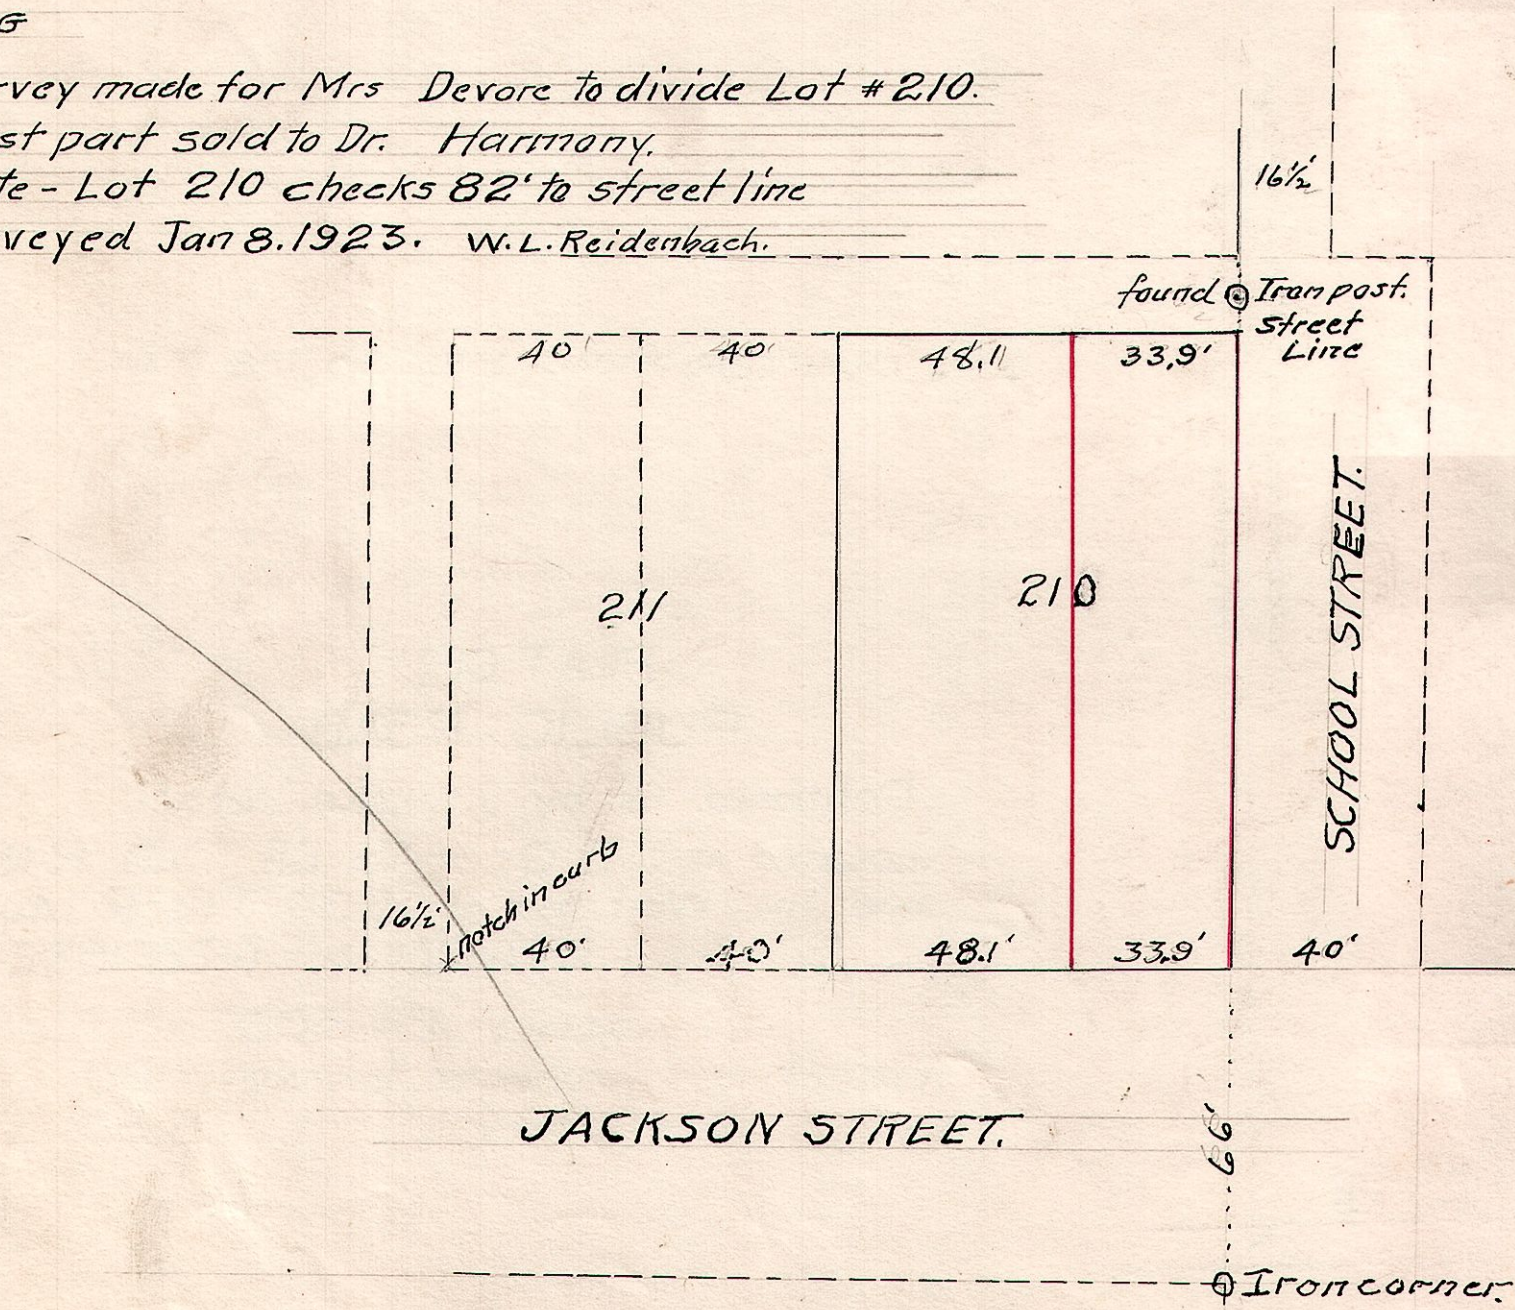 G
rvey made for Mrs Devore to divide Lot #210.
st part sold to Dr. Harmony.
te - Lot 210 checks 82' to street line
veyed Jan 8. 1923. W.L. Reidenbach.
16½'
found
Iron post.
Street
Line
40' 40' 48.1' 33.9'
211
210
SCHOOL STREET.
notch in curb
16½'
40' 40' 48.1' 33.9' 40'
JACKSON STREET.
66'
Iron corner.